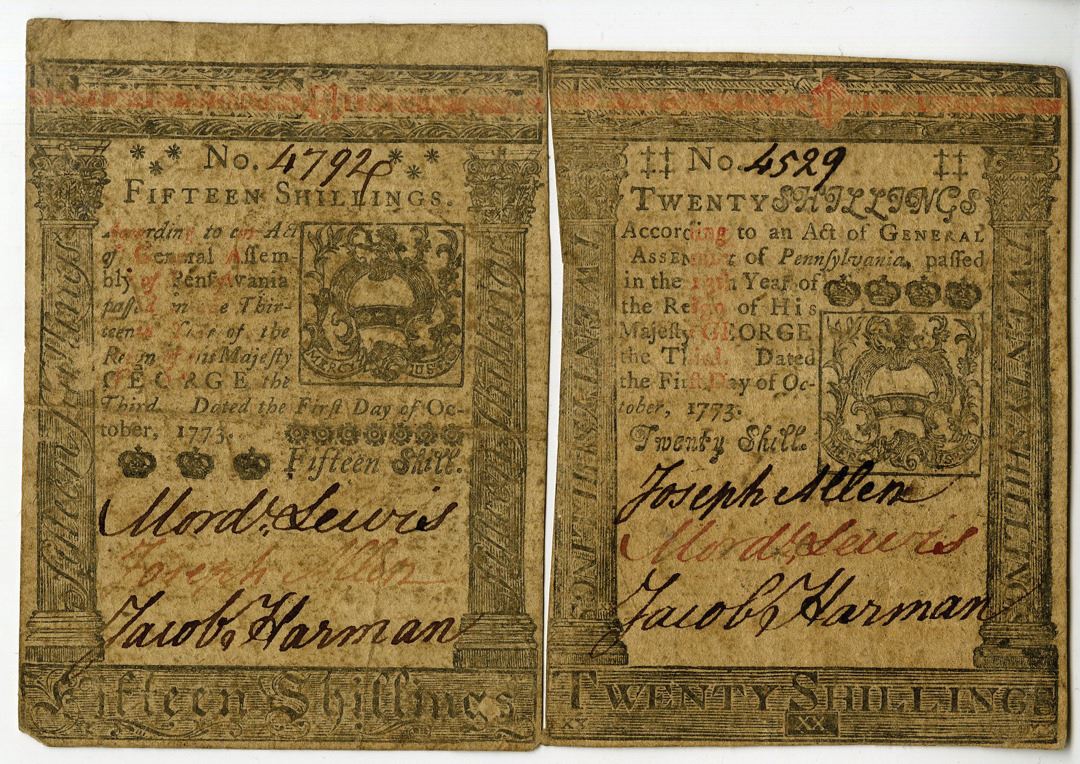 No. 4792
FIFTEEN SHILLINGS.
According to an Act
of General Assem-
bly of Pensylvania
passed in the Thir-
teenth Year of the
Reign of his Majesty
GEORGE the
Third. Dated the First Day of Oc-
tober, 1773.
Fifteen Shill.
MERCY JUST
Mord. Lewis
Joseph Allen
Jacob Harman
Fifteen Shillings
Fifteen Shillings
Fifteen Shillings
No. 4529
TWENTY SHILLINGS
According to an Act of GENERAL
ASSEMBLY of Pennsylvania, passed
in the 13th Year of
the Reign of His
Majesty GEORGE
the Third. Dated
the First Day of Oc-
tober, 1773.
Twenty Shill.
Joseph Allen
Mord. Lewis
Jacob Harman
TWENTY SHILLINGS
TWENTY SHILLING
TWENTY SHILLINGS
XX
XX